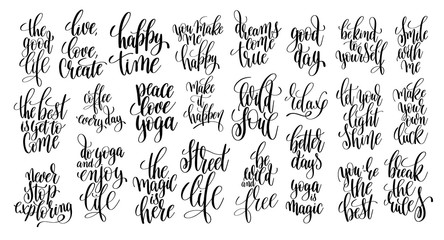 the
good
life
live,
love,
create
happy
time
you make
me
happy
dreams
come
true
good
day
be kind
to
yourself
smile
with
me
the best
is yet to
come
coffee
every day
peace
love
yoga
make
it
happen
wild
soul
let your
light
shine
make
your
own
luck
never
stop
exploring
do yoga
and
enjoy
life
the
magic
is
here
street
life
be
wild
and
free
better
days
yoga
is
magic
you're
the
best
break
the
rules